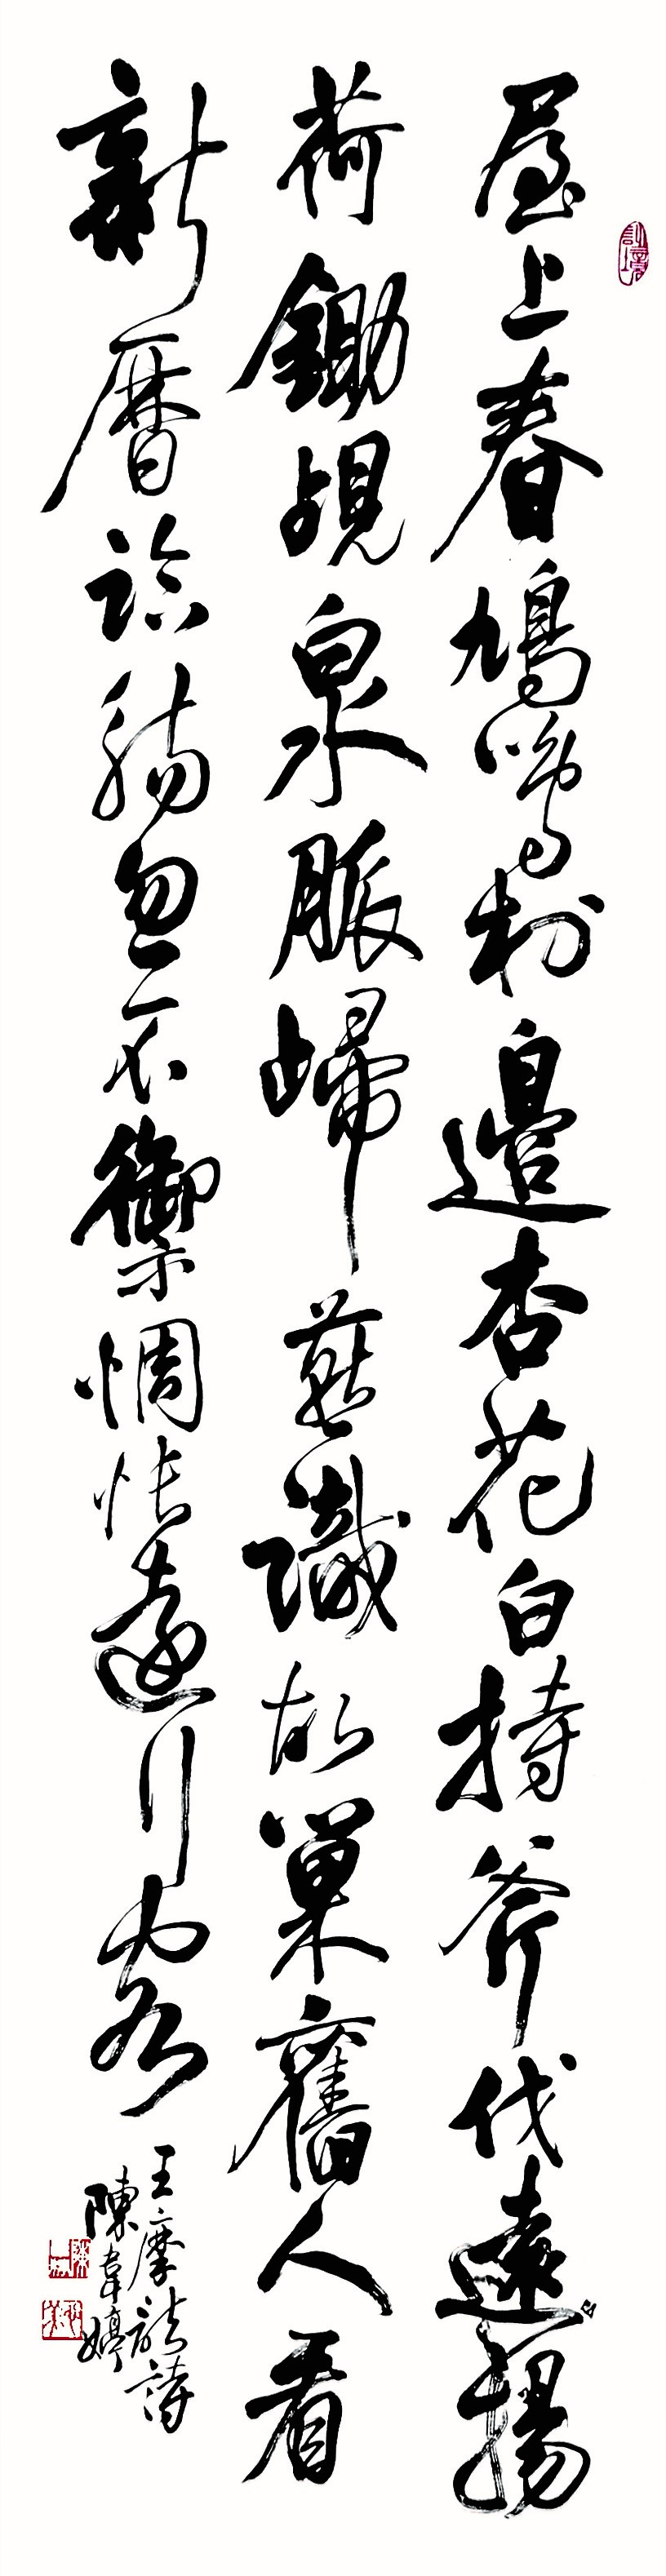 屋上春鳩鳴村邊杏花白持斧伐遠揚
荷鋤覘泉脈歸燕識故巢舊人看
新曆臨觴忽不禦惆悵遠行客
王摩詰詩
陳韋婷